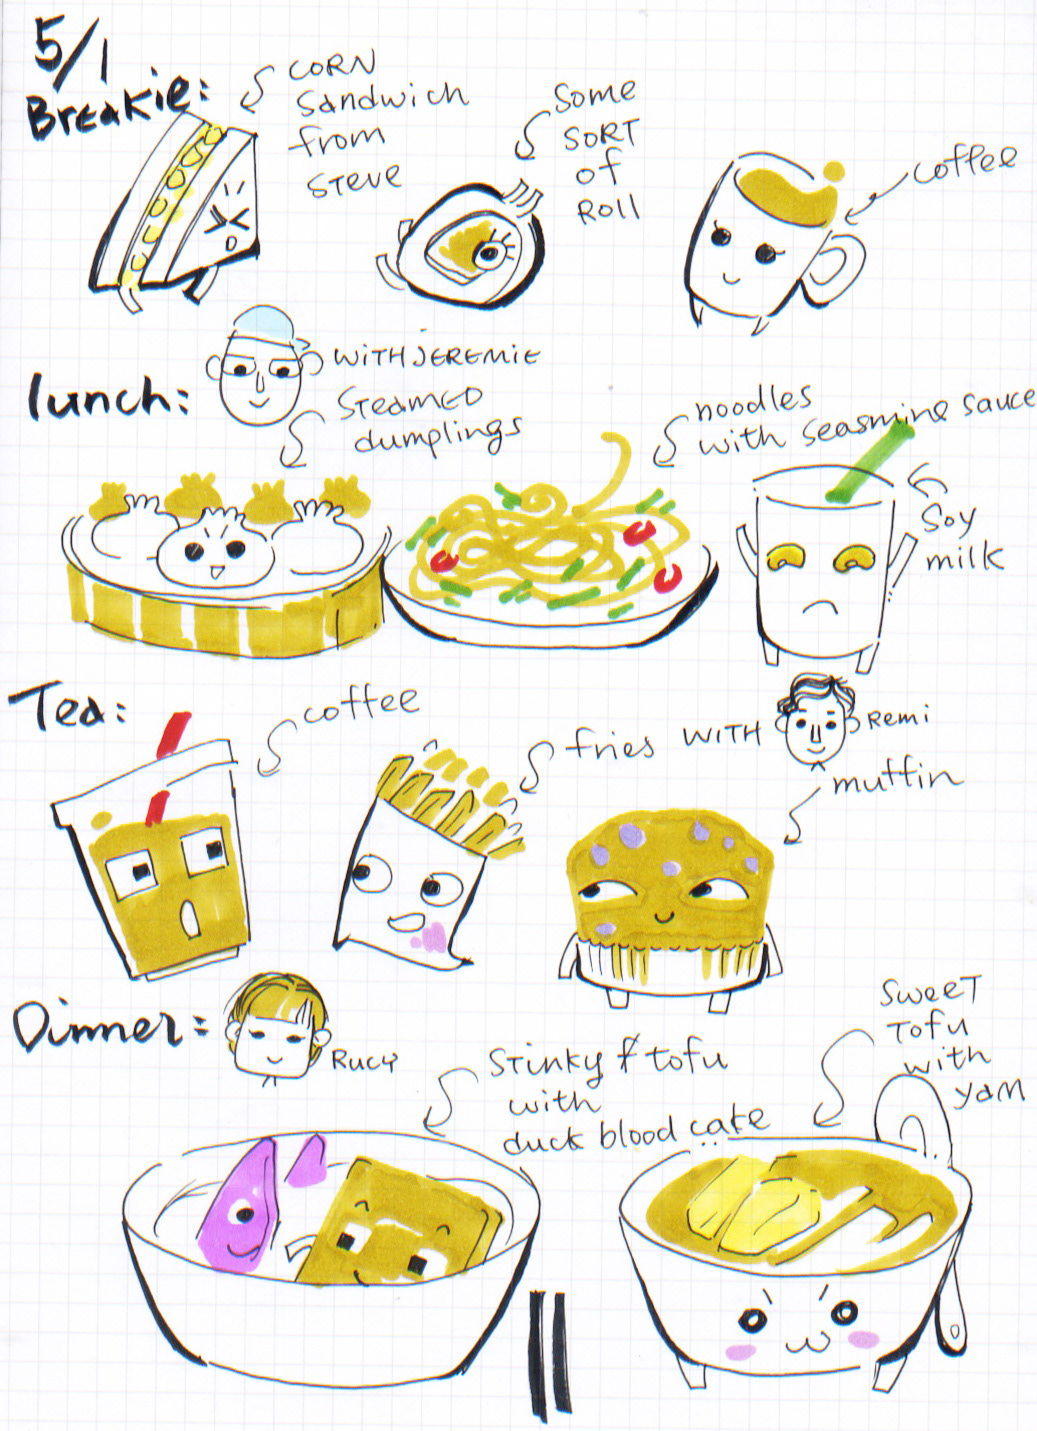 5/1
Breakie:
CORN
sandwich
from
STEVE
Some
SORT
of
ROLL
coffee
lunch:
WITH JEREMIE
STEAMED
dumplings
noodles
with seasmine sauce
Soy
milk
Tea:
coffee
fries
WITH
Remi
muffin
Dinner:
RUCY
Stinky tofu
with
duck blood cake
SWEET
TOFU
with
yam